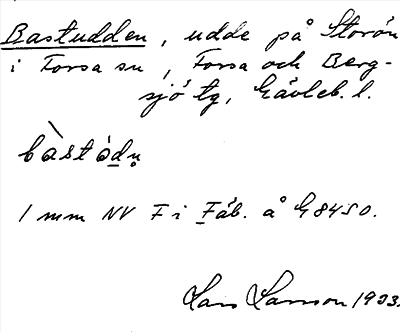 Bastudden, udde på Storön
i Forsa sn, Forsa och Berg-
sjö tg, Gävleb. l.
bàstódn̥
1 mm NV F i Fåb. å G8450.
Lars Larsson 1933.